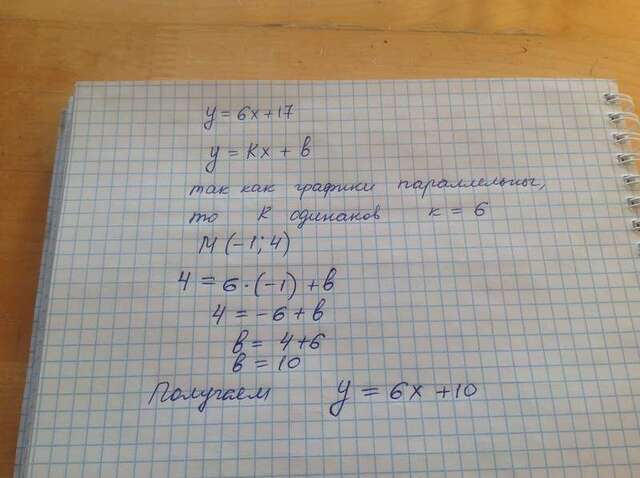 y = 6x + 17
y = Kx + в
так как графики параллельны,
то К одинаков к = 6
М (-1; 4)
4 = 6 · (-1) + в
4 = -6 + в
в = 4+6
в = 10
Получаем y = 6x + 10